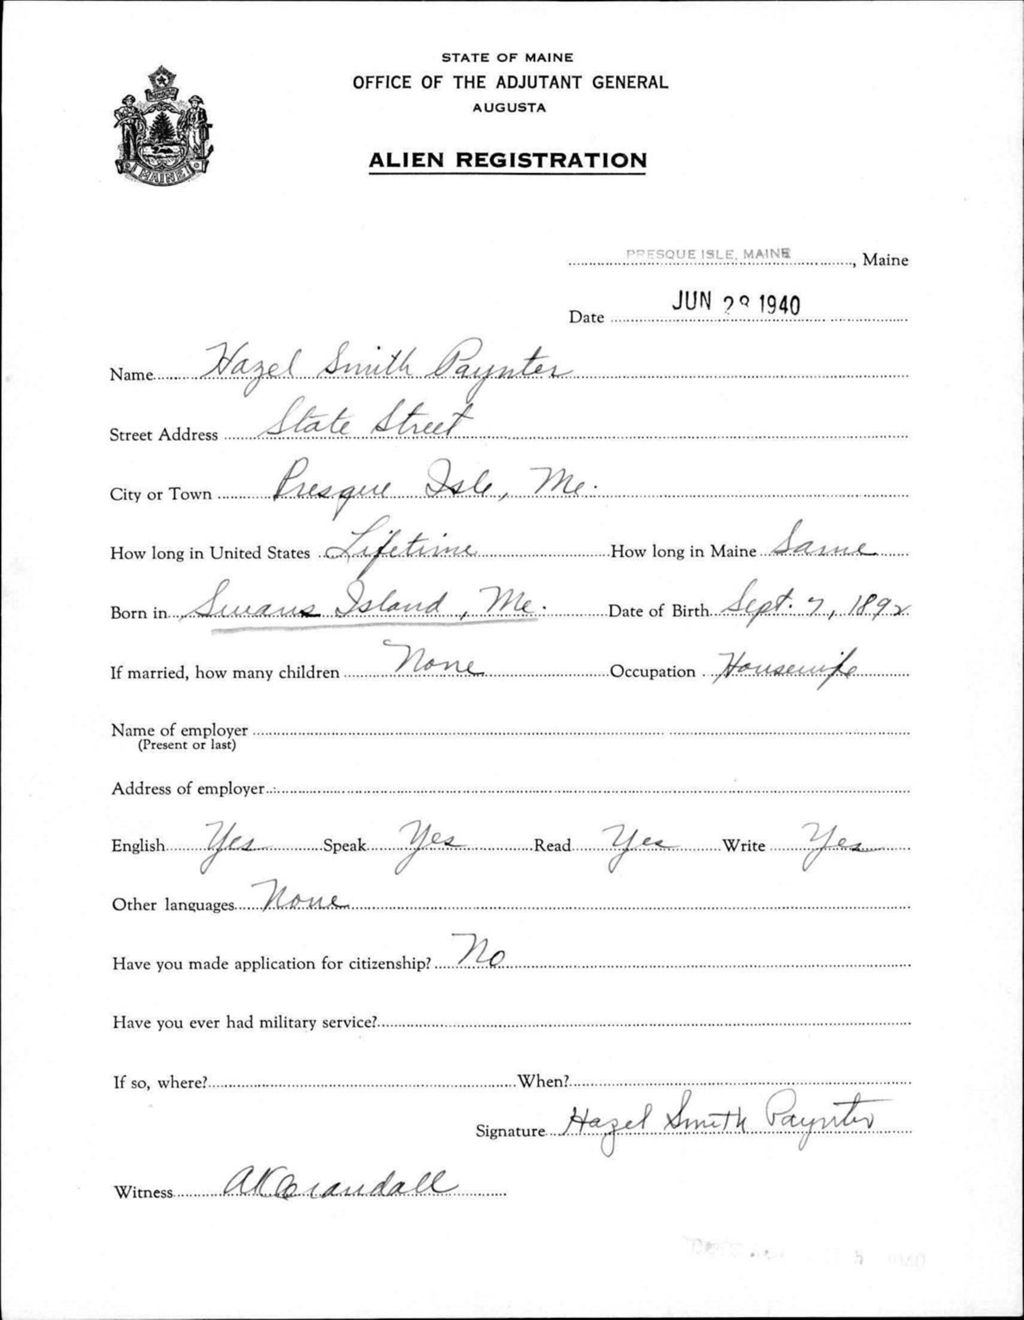 STATE OF MAINE
OFFICE OF THE ADJUTANT GENERAL
AUGUSTA
ALIEN REGISTRATION
MAINE
PRESQUE ISLE, MAINE, Maine
Date JUN 28 1940
Name Hazel Smith Paynter
Street Address State Street
City or Town Presque Isle, Me.
How long in United States Lifetime How long in Maine Same
Born in Swans Island, Me. Date of Birth Sept. 7, 1892
If married, how many children None Occupation Housewife
Name of employer
(Present or last)
Address of employer
English Yes Speak Yes Read Yes Write Yes
Other languages None
Have you made application for citizenship? No
Have you ever had military service?
If so, where? When?
Signature Hazel Smith Paynter
Witness A K Crandall